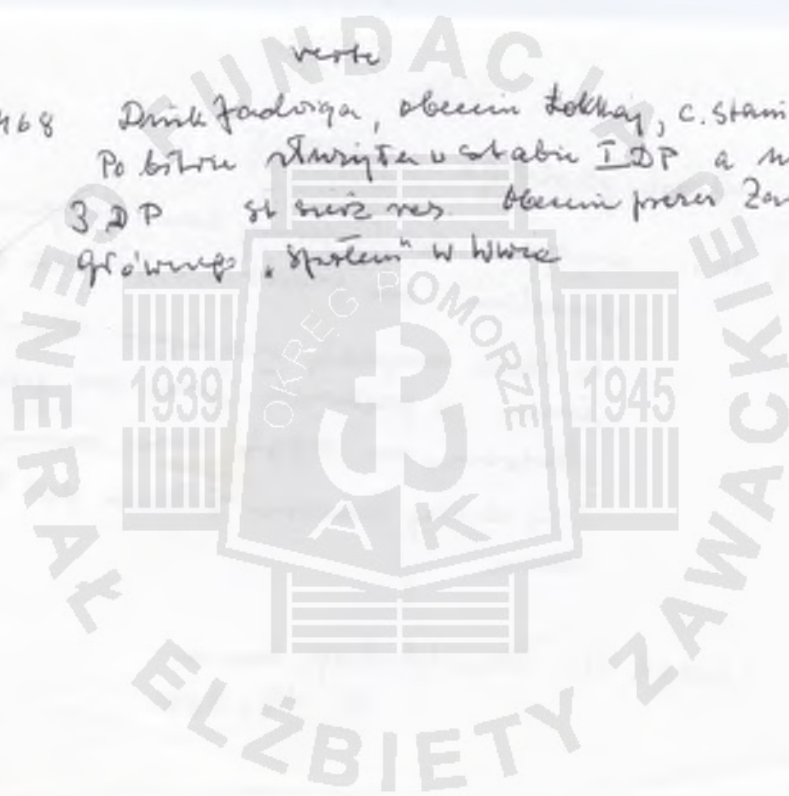 verte
468 Druk Jadwiga, obecnie Łokkaj, c. Stani
Po bitwie służyła w sztabie I DP a
3 DP st sierż rez. Obecnie prezes Zar
głównego "Społem" w
FUNDACJA GENERAŁ ELŻBIETY ZAWACKIEJ
OKRĘG POMORZE
1939 1945
A K